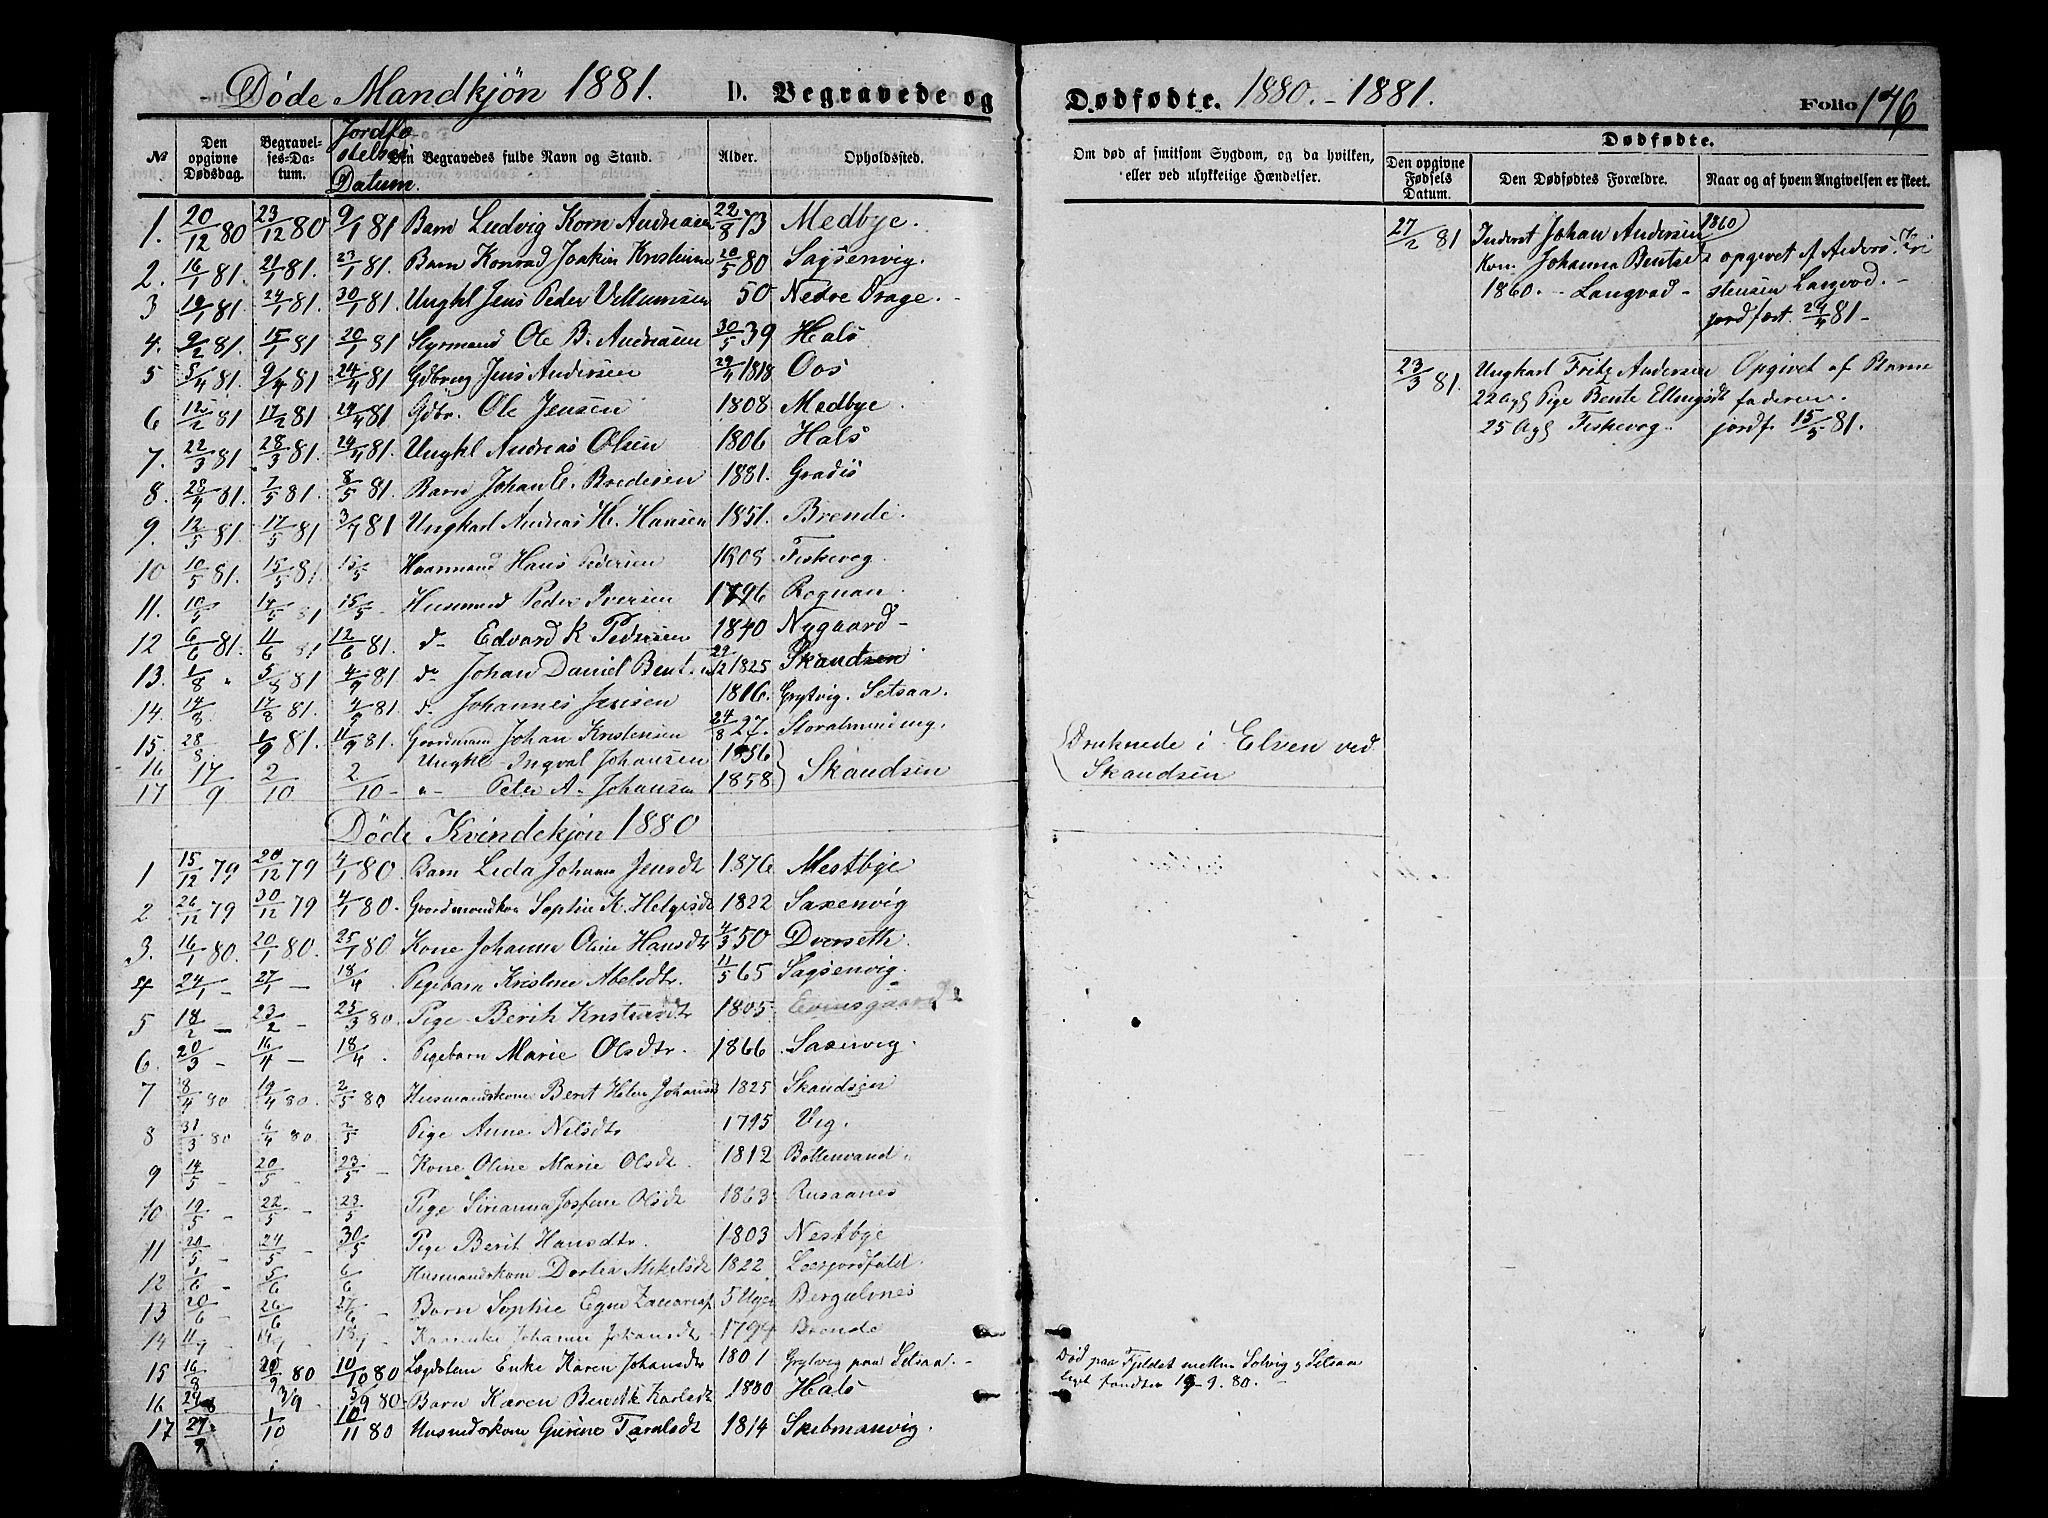 Døde Mandkjøn 1881. D. Begravede og Dødfødte. 1880.-1881. Folio 176
№ Den opgivne Dødsdag. Begravelses-Datum. Jordfæstelses Datum. Den Begravedes fulde Navn og Stand. Alder. Opholdssted.
1. 20/12 80 23/12 80 9/1 81 Barn Ludvig Korn Andreasen 22/8 73 Medbye.
2. 16/1 81. 21/1 81. 23/1 81. Barn Konrad Joakim Kristensen 20/5 80 Sagsenvig.
3 19/1 81 24/1 81. 30/1 81. Unghl Jens Peder Villumsen 50 Nedre Drage.
4. 9/2 81. 15/1 81 20/1 81 Styrmand Ole B. Andreasen 30/5 39 Hals
5 5/4 81 9/4 81 24/4 81 Gdbrug Jens Andersen 29/4 1818 Oos
6 12/2 81 17/2 81 24/4 81 Gdbr. Ole Jensen 1808. Medbye.
7. 22/3 81 28/3 81. 24/4 81. Unghl Andreas Olsen 1806 Hals
8. 28/4 81. 7/5 81. 8/5 81. Barn Johan E. Bredesen 1881. Gradis
9. 12/5 81. 17/5 81 3/7 81 Ungkarl Andreas H. Hansen 1851. Brende.
10 10/5 81. 15/5 81. 15/5 Kaarmand Hans Pedersen 1808. Fiskevog.
11. 10/5 14/5 81 15/5 - Husmand Peder Iversen 1796 Rognan.
12 6/6 81. 11/6 81 12/6 81. d- Edvard K Pedersen 1840 Nygaard-
13. 1/8 " 5/8 81 4/9 81 do Johan Daniel Bent 29/12 1825 Skandsen
14. 14/8 17/8 81. 4/9 81. d- Johannes Jensen 1816. Grytvig. Setsaa.
15. 28/8 1/9 81. 11/9 81. Gaardmand Johan Kristensen 24/8 27. Storalmenning.
16 Unghl Ingval Johansen 1856
17 17/9 2/10 2/10 - "- Peter A. Johansen 1858 } Skandsen
Døde Kvindekjøn 1880
1 15/12 79 20/12 79 4/1 80. Barn Lida Johanna Jensdt 1876 Mestbye
2. 26/12 79 30/12 79 4/1 80. Gaardmandkon Sophie K. Helgesdt 1822 Saxenvig
3. 16/1 80. 20/1 80. 25/1 80 Kone Johanna Oline Hansdtr 4/3 50 Dverseth.
4 24/1 - 27/1 - 18/4 Pigebarn Kristine Abelsdtr 11/5 65 Sagsenvig.
5 18/2 - 23/2 - 25/3 80. Pige Berith 1805. Evensgaard
6. 20/3 - 16/4 - 18/4 . Pigebarn Marie Olsdtr. 1866 Saxenvig.
7 8/4 80 19/4 80. 2/5 80 Husmandskone Berit Helene Johansd 1825 Skandsen
8 31/3 80 6/4 80. 2/5 Pige Anne Nilsdtr 1795 Vig.
9 14/5 - 20/5 - 23/5 - Kone Oline Marie Olsdt. 1812 Bottenvand.
10 19/5 - 22/5 - 23/5 Pige Sirianna Josfine Olsdt 1863 Rusaanes
11 20/5 - 24/5 - 30/5 Pige Berit Hansdtr. 1803 Nestbye
12 1/6 - 5/6 6/6 Husmandskone Dortea Mikelsdt 1822
13 20/6 - 26/6 27/6 - Barn Sophie 5 Uger Bergulnes
14 Johanne Johansdt 1799 Brende
15 16/8 20/9 80 10/10 80 Lægdslem Enke Karen Johansdtr 1801 Grytvig paa Setsaa.-
16 24/8 3/9 - 5/9 80 - Barn Karen Bendik Karlsdt 1880 Hals
17 27/9 1/10 10/11 80 Husmdskone Gurine Taralsdt 1814 Skibmanvig.
Om død af smitsom Sygdom, og da hvilken, eller ved ulykkelige Hændelser.
Druknede i Elven ved
Skandsen
Død paa Fjeldet mellem Solvig og Setsaa
liget fundet 19.9.80.-
Dødfødte.
Den opgivne Fødsels Datum. Den Dødfødtes Forældre. Naar og af hvem Angivelsen er skeet.
27/2 81 Inderst Johan Andersen 1860
Kon. Johanna Bentsdt opgivet af Anders Kri
1860. - Langvad - stensen Langvod.-
jordfæst. 24/4 81-
23/3 81. Ungkarl Fritz Andersen Opgivet af Barne
22 Agl Pige Bente Ellingsdt faderen.
25 Agl Fiskevog. jordf. 15/5 81.